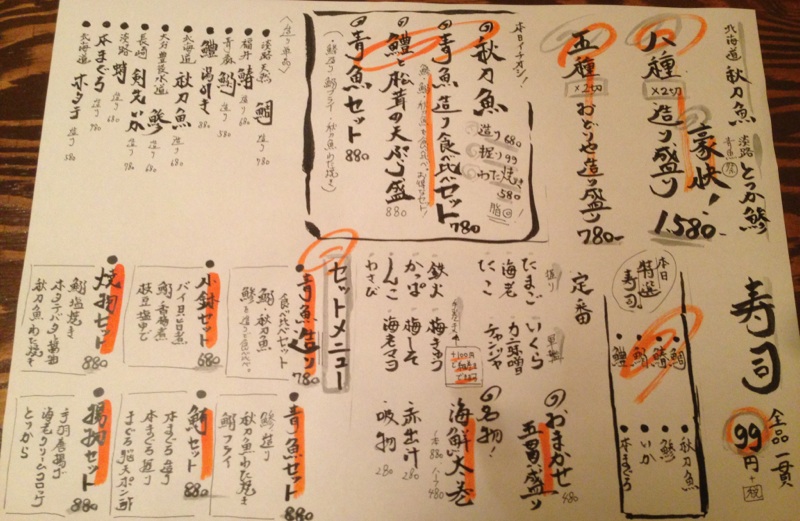 北海道 秋刀魚
淡路 とつか鯵
八種 ×2切 造り盛り
豪快! 1,580-
五種 ×2切 おどりや造り盛り 780-
本日イチオシ!
秋刀魚
造り 680
握り 99
わた焼き 580
脂◎!
青魚造り食べ比べセット 780
鱧と松茸の天ぷら盛 880
青魚セット 880
〈造り単品〉
淡路天然 鯛 造り 780
福井 鯖 造り 680
青森 鰯 造り 580
鱧 湯引き 880
北海道 秋刀魚 造り 680
大分豊後水道 鯵 造り 680
長崎 剣先いか 造り 780
淡路 蛸 造り 680
本まぐろ 造り 780
北海道 ホタテ 造り 580
寿司 全品一貫 99円+税
本日特選寿司
鯛
鯖
鰯
鱧
秋刀魚
鯵
いか
本まぐろ
定番
握り
たまご
海老
たこ
軍艦
いくら
カニ味噌
チャンジャ
鉄火
かっぱ
しんこ
わさび
梅きゅう
梅しそ
海老マヨ
おまかせ
五貫盛り 480
名物!
海鮮大巻
一本 880 ハーフ 480
赤出汁 280
吸物 280
セットメニュー
青魚造り 780
食べ比べセット
鰯 秋刀魚
小鉢セット 680
バイ貝旨煮
枝豆塩ゆで
焼物セット 880
鰯塩焼き
ホタテバター醤油
秋刀魚わた焼き
青魚セット 880
鯵造り
秋刀魚わた焼き
鰯フライ
鮪セット 880
本まぐろ造り
揚物セット 880
手羽唐揚げ
海老クリームコロッケ